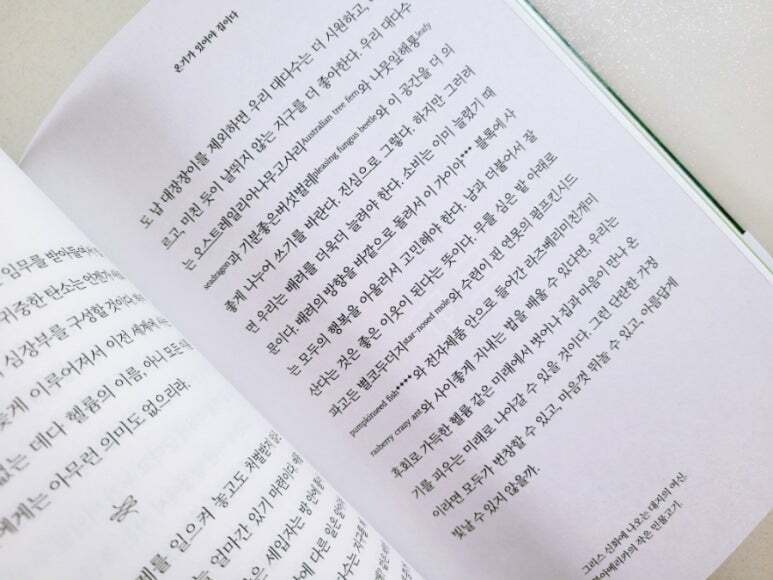 임무를 받아들여서
귀중한 탄소는 언젠가
심장부를 구성할 것이다.
이루어져서 이전 세계에서
없는 데다 헬륨의 이름, 아니 모든
에게는 아무런 의미도 없으리라.
를 일으켜 놓고도 처벌받지
얼마간 있기 마련이다.
은 세입자는 방 안에
에 다른 일은
온기가 있어야 집이다
도 납 대장장이를 제외하면 우리 대다수는 더 시원하고,
르고, 미친 듯이 날뛰지 않는 지구를 더 좋아한다. 우리 대다수
는 오스트레일리아나무고사리Australian tree fern와 나뭇잎해룡leafy
seadragon과 기분좋은버섯벌레pleasing fungus beetle와 이 공간을 더 의
좋게 나누어 쓰기를 바란다. 진심으로 그렇다. 하지만 그러려
면 우리는 배려를 더욱더 늘려야 한다. 소비는 이미 늘렸기 때
문이다. 배려의 방향을 바깥으로 돌려서 이 가이아** 블록에 사
는 모두의 행복을 아울러서 고민해야 한다. 남과 더불어서 잘
산다는 것은 좋은 이웃이 된다는 뜻이다. 무를 심은 밭 아래로
파고든 별코두더지star-nosed mole와 수련이 핀 연못의 펌프킨시드
pumpkinseed fish****와 전자제품 안으로 들어간 라즈베리미친개미
rasberry crazy ant와 사이좋게 지내는 법을 배울 수 있다면, 우리는
후회로 가득한 헬륨 같은 미래에서 벗어나 집과 마음이 만나 온
기를 피우는 미래로 나아갈 수 있을 것이다. 그런 단란한 가정
이라면 모두가 번창할 수 있고, 마음껏 뛰놀 수 있고, 아름답게
빛날 수 있지 않을까.
그리스 신화에 나오는 대지의 여신.
아메리카의 작은 민물고기.